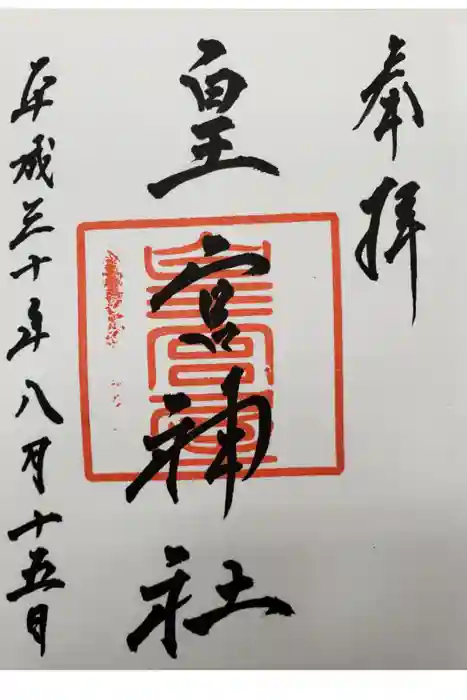 奉拝
皇宮神社
平成三十年八月十五日